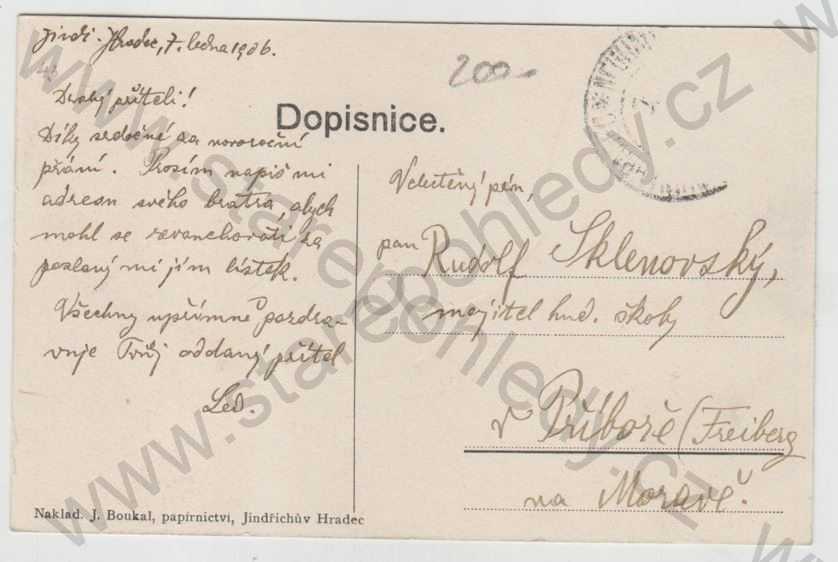 Jindř. Hradec, 7. ledna 1906.
200.-
Drahý příteli!
Dopisnice.
Díky srdečné za novoroční
přání. Prosím napiš mi
adresu svého bratra, abych
mohl se revanchovati za
poslaný mi jím lístek.
Všechny upřímně pozdra-
vuje Tvůj oddaný přítel
Led.
Velectěný pán,
pan Rudolf Sklenovský,
majitel hud. školy
v Příboře (Freiberg
na Moravě.
Naklad. J. Boukal, papírnictví, Jindřichův Hradec
www.starepohledy.cz
www.starepohledy.cz